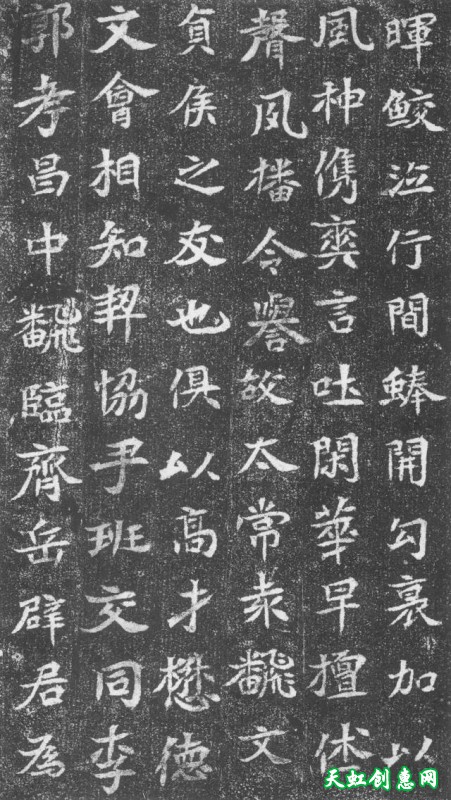 暉鮫泣行間開勾裏加以
風神儁爽言吐閑華早擅
聲夙播令譽故太常袁飜文
貞侯之友也俱以高才懋德
文會相知契協手班交同李
郭孝昌中飜臨齊岳辟君為
天虹创惠网